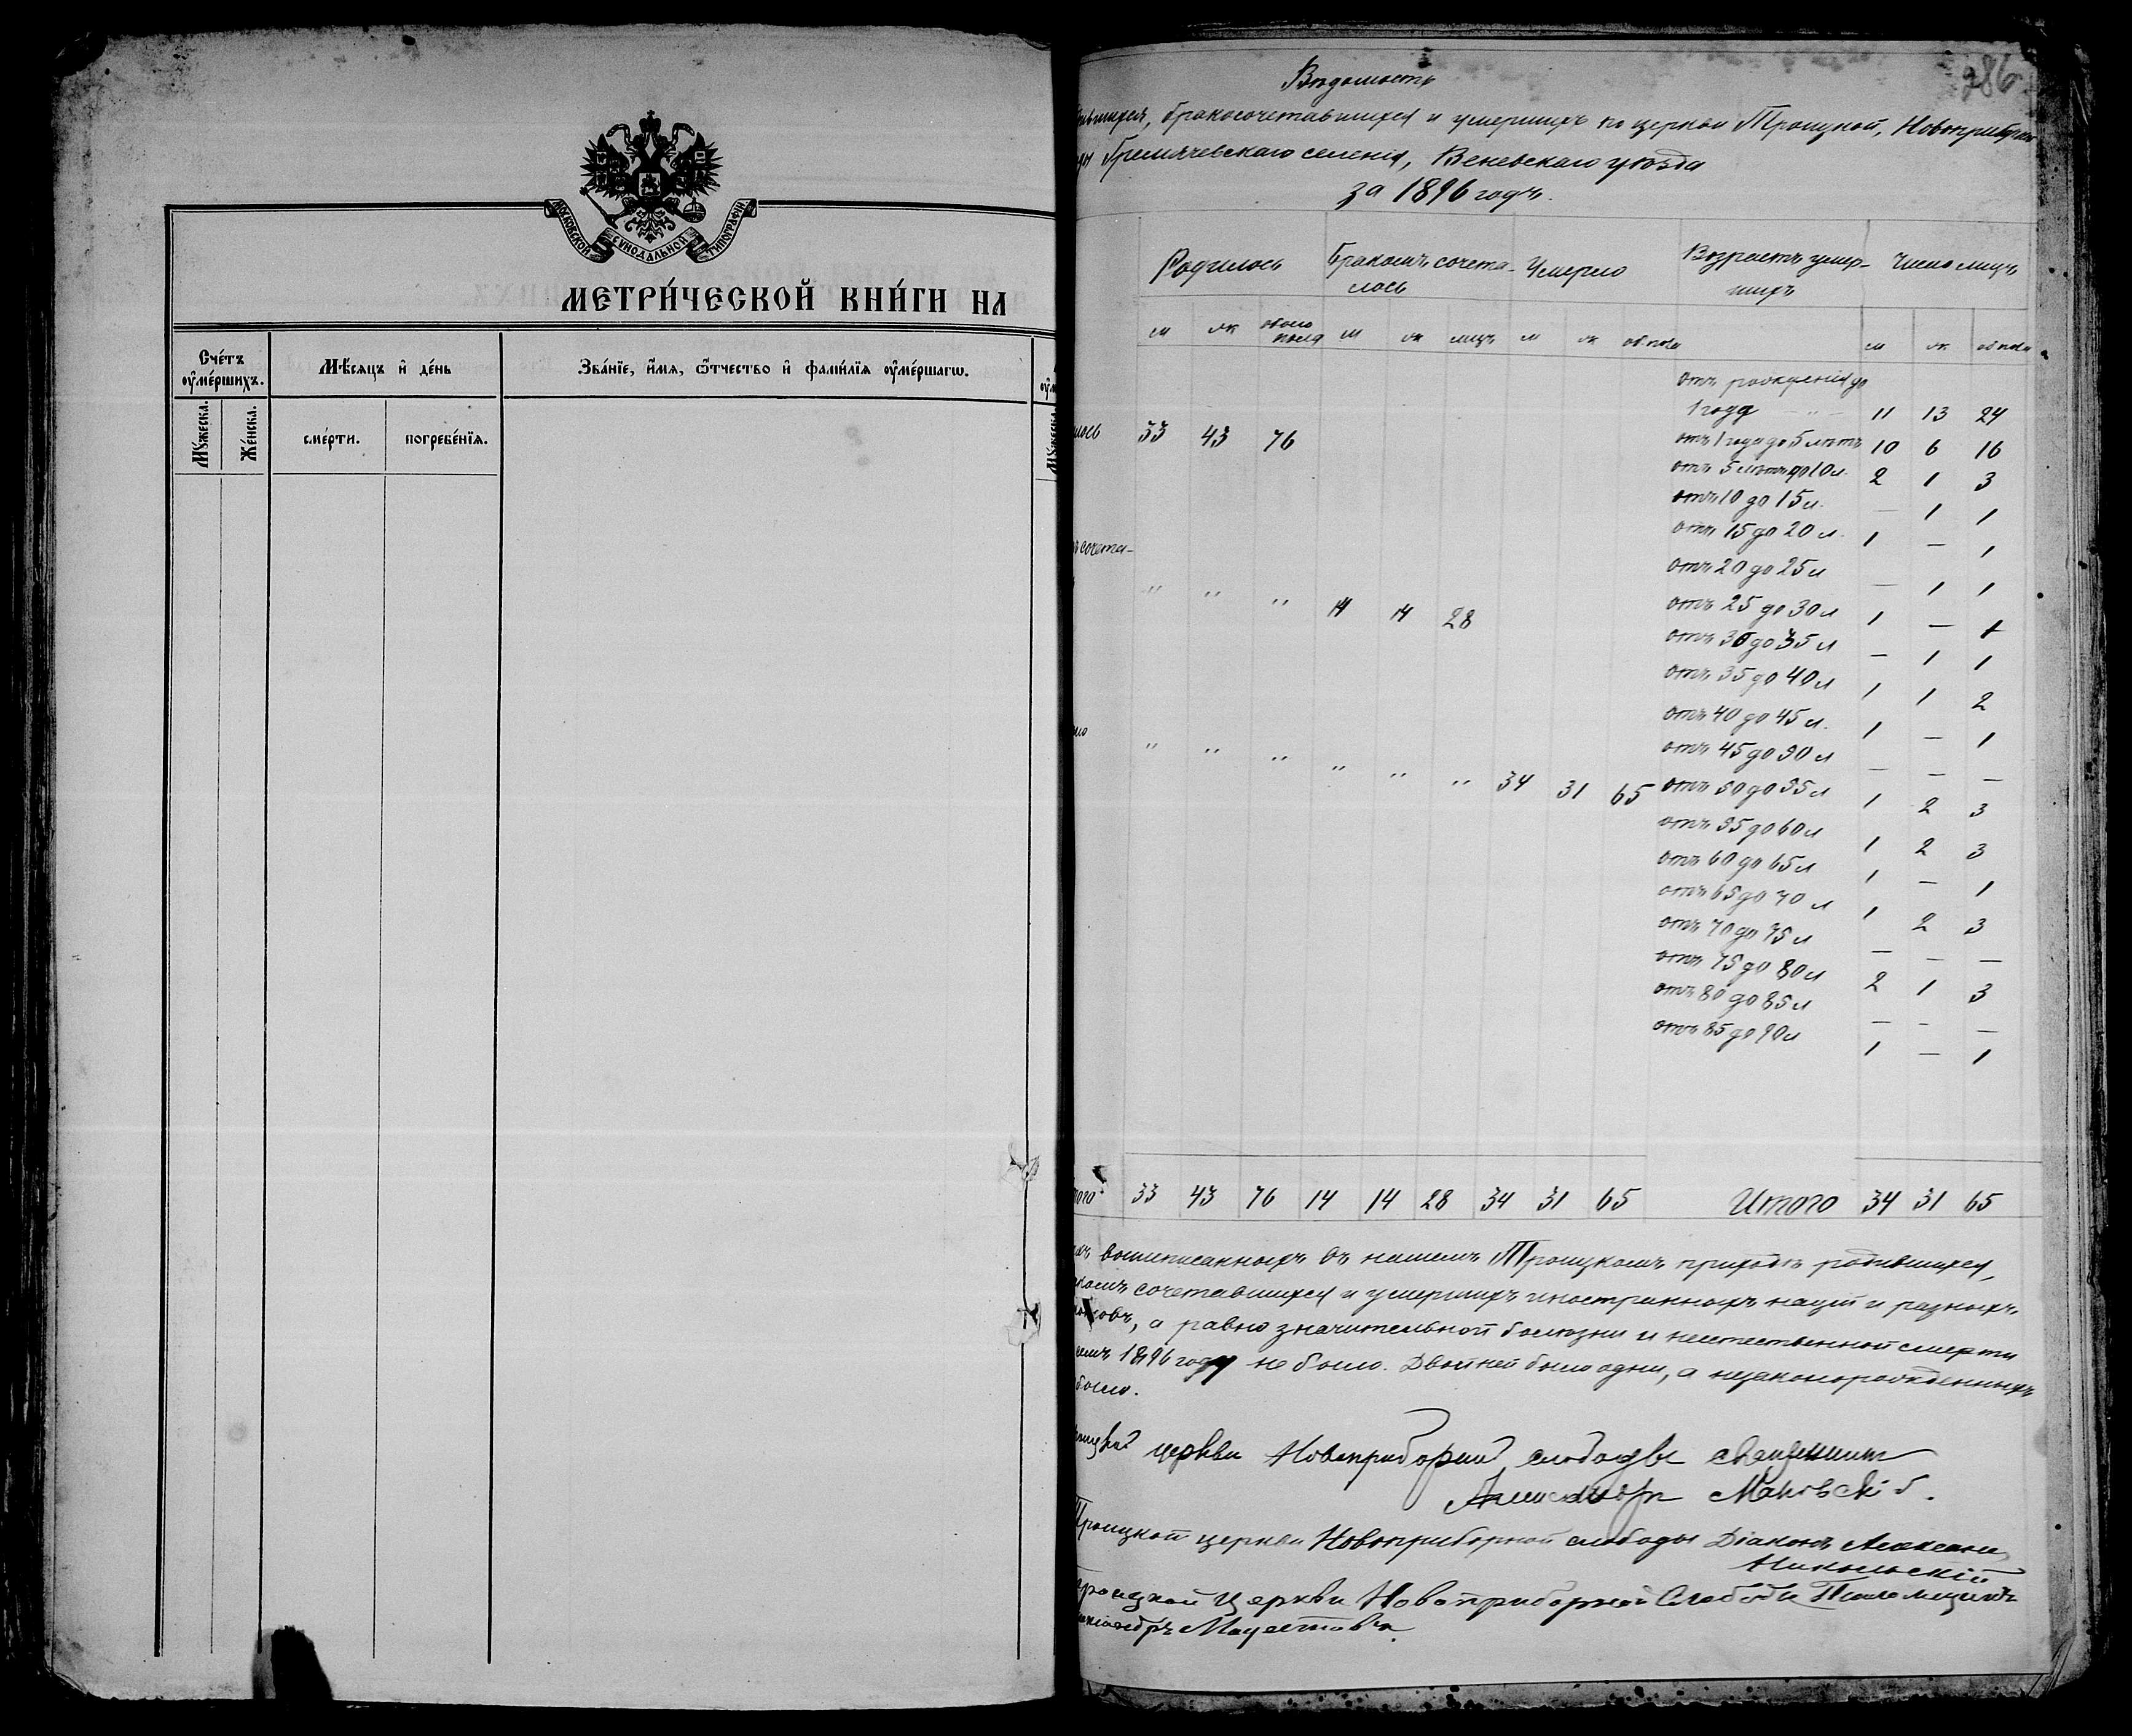 МОСКОВСКОЙ СѴНОДАЛЬНОЙ ТИПОГРАФІИ
МЕТРИ́ЧЕСКОЙ КНИ́ГИ НА
Сче́тъ ᲂу҆ме́ршихъ.
Мѣ́сяцъ и҆ де́нь
Зва́нїе, и҆́мѧ, ѻ҆́тчество и҆ фамѝлїѧ ᲂу҆ме́ршагѡ.
Мꙋ́жеска.
Же́нска.
сме́рти.
погребе́нїѧ.
286
Вѣдомость
бракосочетавшихся и умершихъ по церкви Троицкой, Новоприборной
Гремячевскаго селенія, Веневскаго уѣзда
за 1896 годъ.
Родилось Бракомъ сочета- Умерло Возрастъ умер- Число лицъ
лось шихъ
м ж обоего пола м ж лицъ м ж об пола м ж об пола
отъ рожденія до
1 года 11 13 24
33 43 76
отъ 1 года до 5 лѣтъ 10 6 16
отъ 5 лѣтъ до 10 л. 2 1 3
отъ 10 до 15 л. — 1 1
отъ 15 до 20 л. 1 — 1
сочета-
отъ 20 до 25 л — 1 1
" " " 14 14 28
отъ 25 до 30 л 1 — 1
отъ 30 до 35 л — 1 1
отъ 35 до 40 л 1 1 2
отъ 40 до 45 л. 1 — 1
отъ 45 до 50 л — — —
" " " " " " 34 31 65
отъ 50 до 55 л 1 2 3
отъ 55 до 60 л 1 2 3
отъ 60 до 65 л 1 — 1
отъ 65 до 70 л 1 2 3
отъ 70 до 75 л — — —
отъ 75 до 80 л 2 1 3
отъ 80 до 85 л — — —
отъ 85 до 90 л 1 — 1
33 43 76 14 14 28 34 31 65 Итого 34 31 65
вышеписанныхъ въ нашемъ Троицкомъ приходѣ родившихся,
сочетавшихся и умершихъ иностранныхъ націй и разныхъ
а равно значительной болѣзни и неестественной смерти
1896 году не было. Двойней было одни, а незаконорожденныхъ
было.
церкви Новоприборной слободы священник
Александръ Маковскій.
Троицкой церкви Новоприборной слободы Діаконъ Алексѣй
Никольскій
Троицкой Церкви Новоприборной Слободы Псаломщикъ